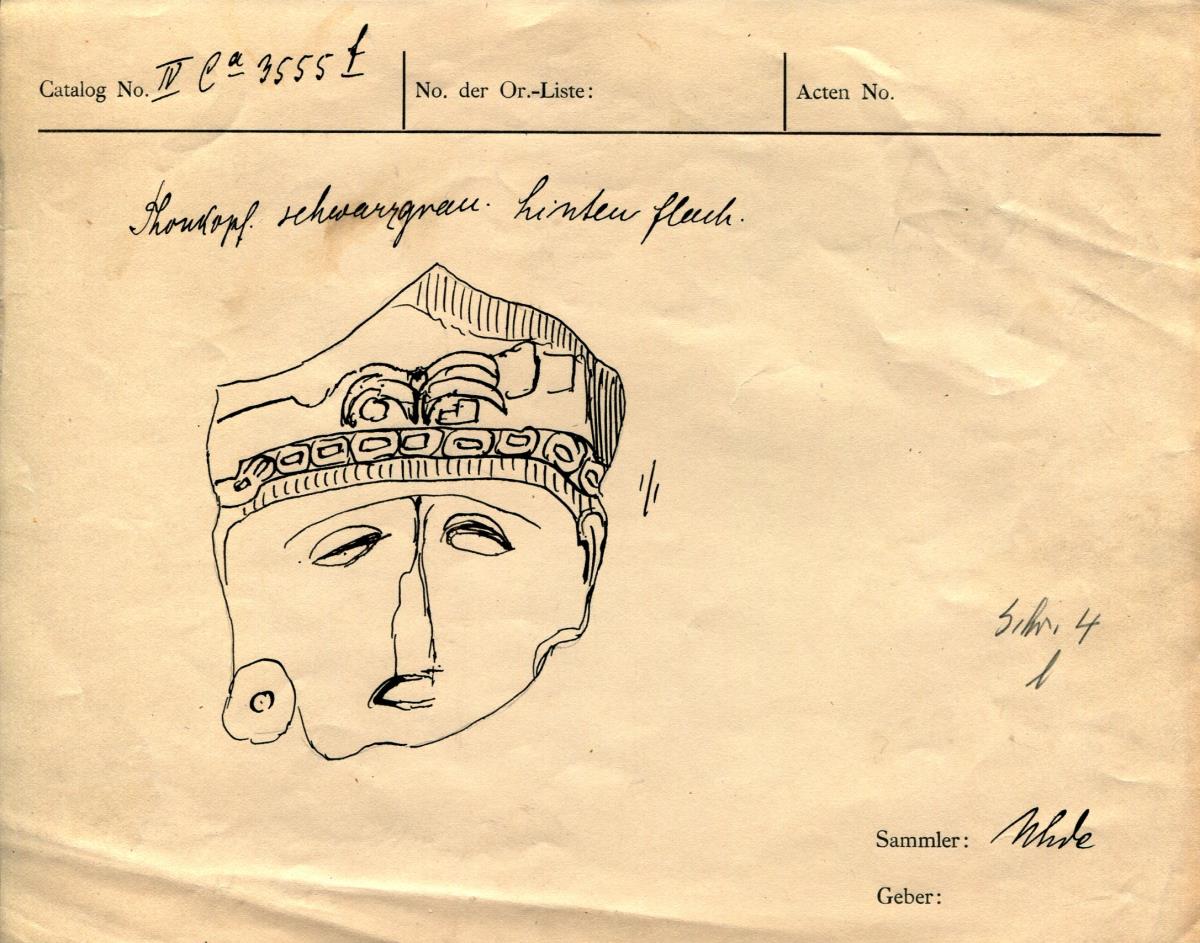 Catalog No. IV Ca 3555 f
No. der Or.-Liste:
Acten No.
Thonkopf. schwarzgrau. hinten flach.
1/1
4
Sammler: Uhde
Geber: